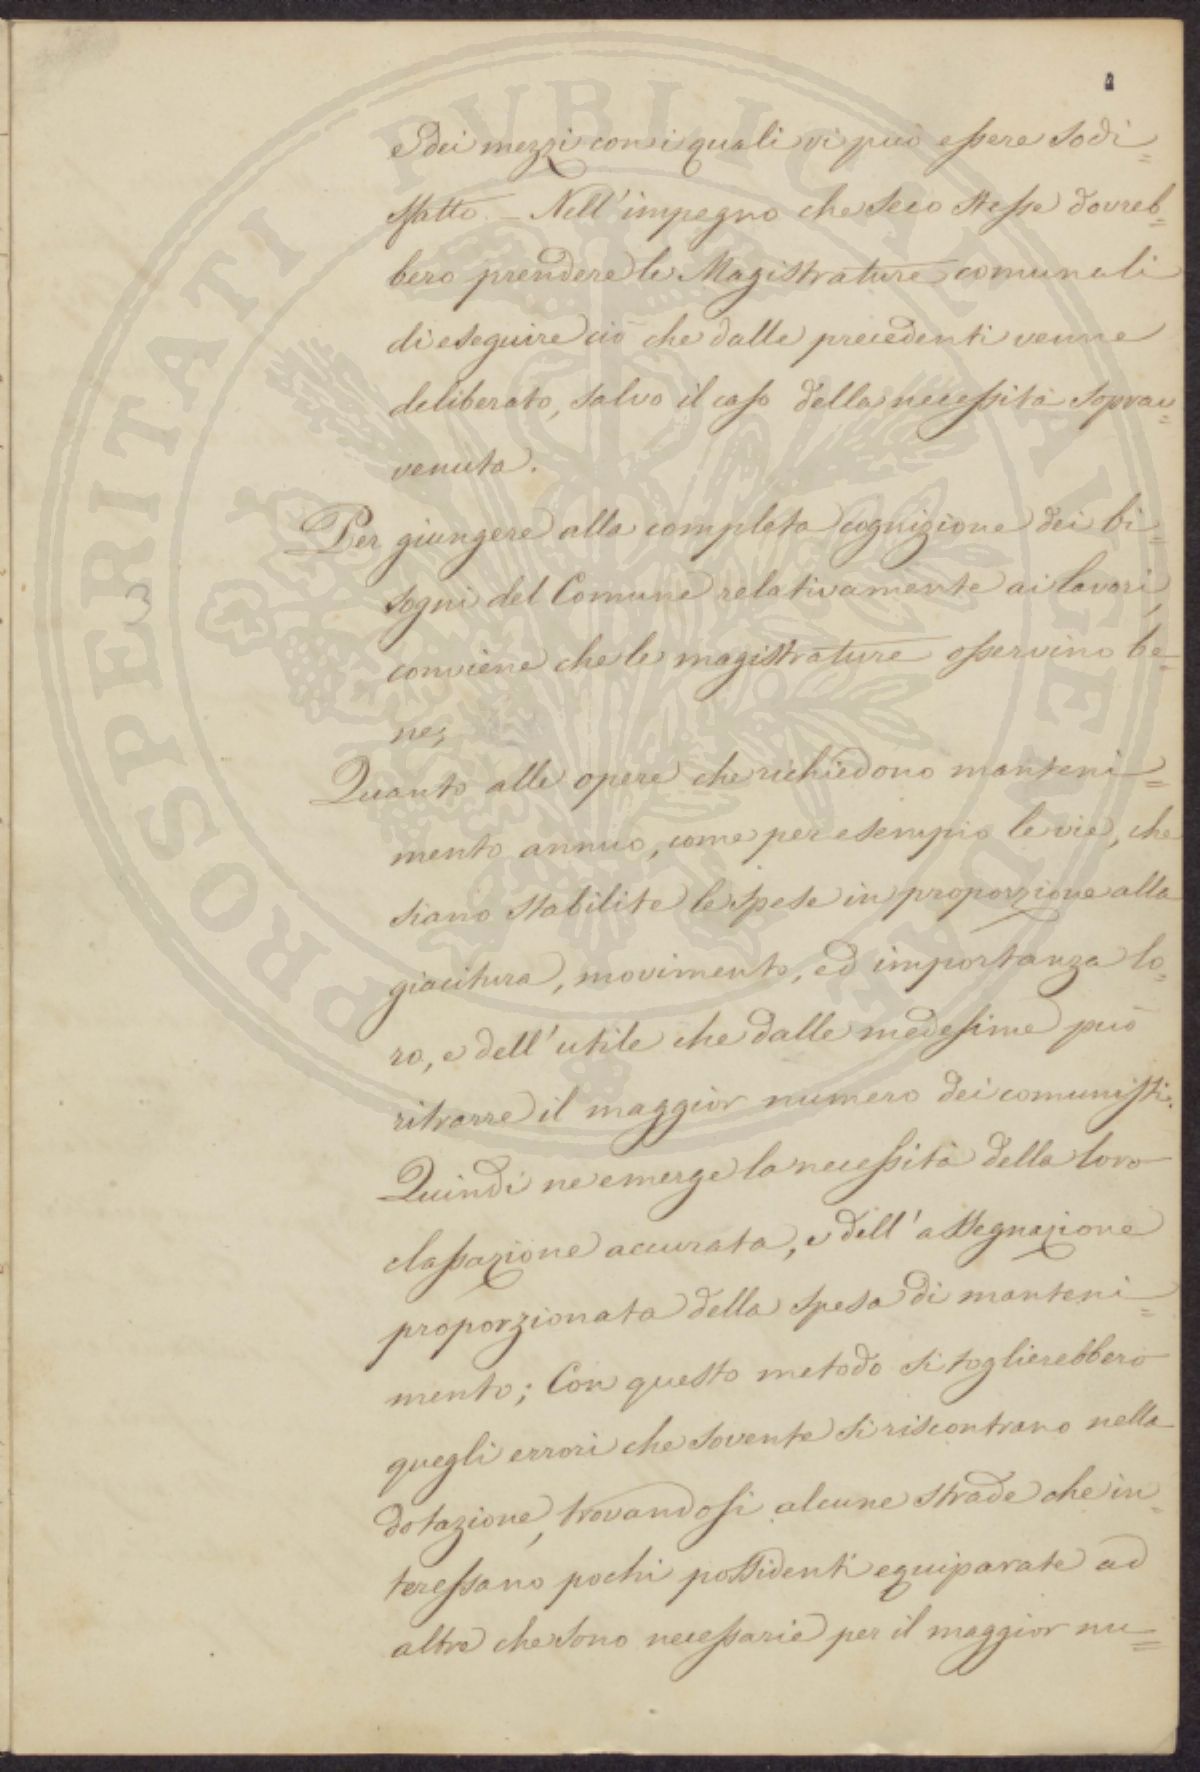 e dei mezzi con i quali vi può essere sodi=
sfatto. – Nell'impegno che seco stesse dovreb=
bero prendere le Magistrature comunali
di eseguire ciò che dalle precedenti venne
deliberato, salvo il caso della necessità soprav=
venuta.
Per giungere alla completa cognizione dei bi=
sogni del Comune relativamente ai lavori,
conviene che le magistrature osservino be=
ne;
Quanto alle opere che richiedono manteni=
mento annuo, come per esempio le vie, che
siano stabilite le spese in proporzione alla
giacitura, movimento, ed importanza lo=
ro, e dell'utile che dalle medesime può
ritrarre il maggior numero dei comunisti.
Quindi ne emerge la necessità della loro
classazione accurata, e dell'assegnazione
proporzionata della spesa di manteni=
mento; Con questo metodo si toglierebbero
quegli errori che sovente si riscontrano nella
dotazione, trovandosi alcune strade che in=
teressano pochi possidenti equiparate ad
altre che sono necessarie per il maggior nu=
PROSPERITATI PVBLICAE AVGENDAE